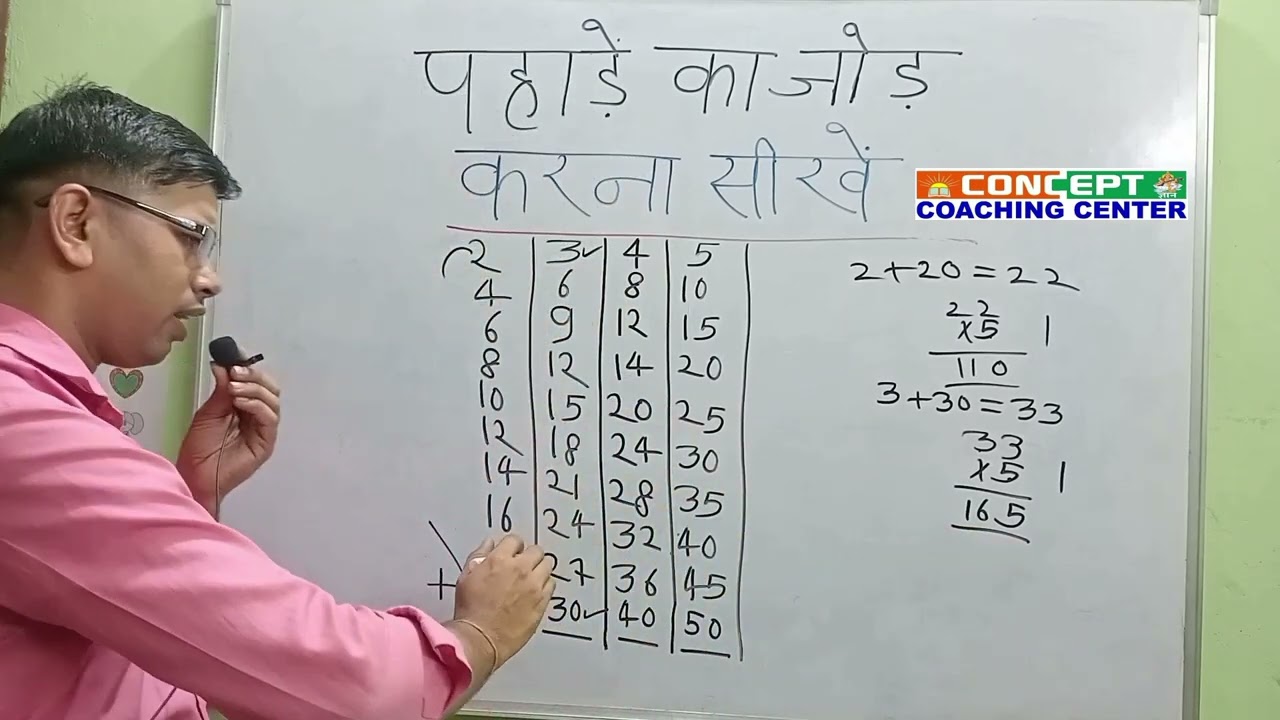 पहाड़ें का जोड़
करना सीखें
CONCEPT
COACHING CENTER
2 3 4 5
4 6 8 10
6 9 12 15
8 12 14 20
10 15 20 25
12 18 24 30
14 21 28 35
16 24 32 40
+ 27 36 45
30 40 50
2+20=22
22
×5 1
110
3+30=33
33
×5 1
165